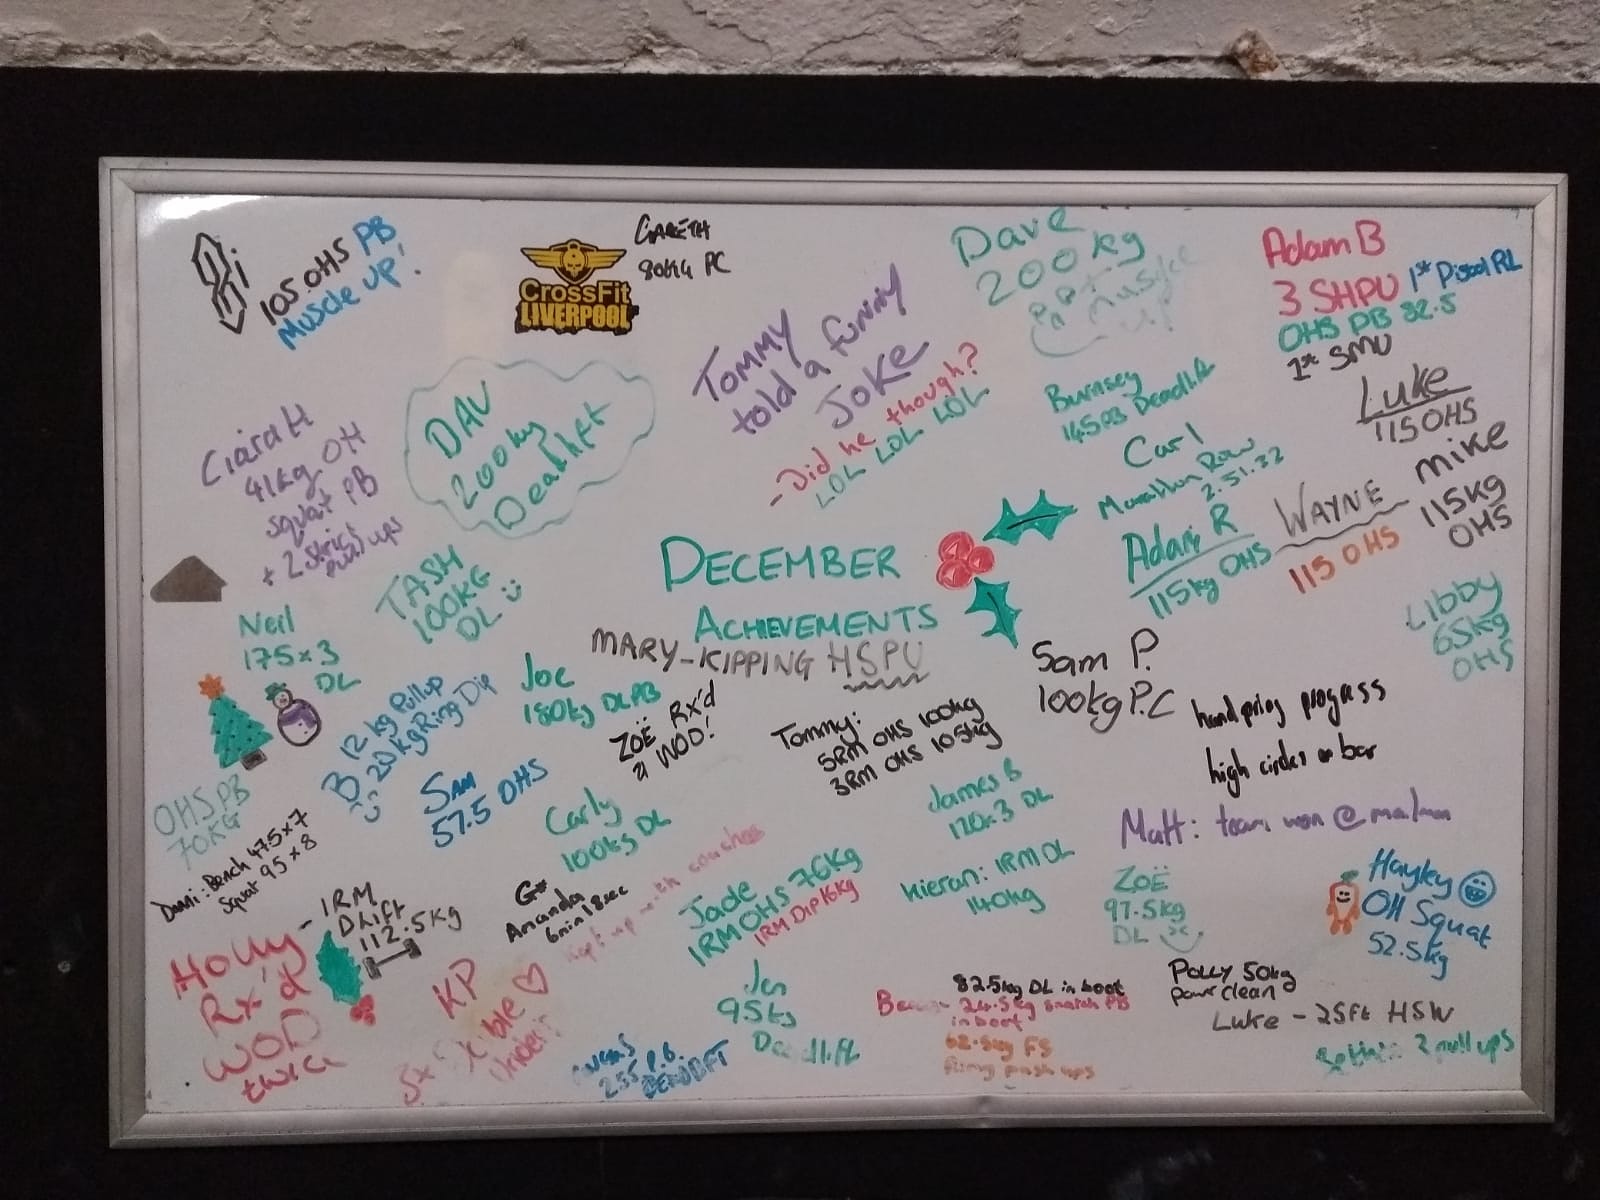 105 OHS PB
Muscle up!
CrossFit
LIVERPOOL
GARETH
80KG PC
TOMMY
told a funny
JOKE
- Did he though?
LOL LOL LOL
Dave
200kg
Adam B
3 SHPU 1st Pistol RL
OHS PB 82.5
1st SMU
Luke
115 OHS
mike
115kg
OHS
Burnsey
Deadlift
Carl
Marathon Row
2.51.32
Adam R
115kg OHS
WAYNE
115 OHS
Libby
65kg
OHS
Ciara H
41kg OH
squat PB
+ 2 strict
pull ups
DAV
200kg
Deadlift
TASH
100KG
DL
Neil
175x3
DL
DECEMBER
ACHIEVEMENTS
MARY-KIPPING HSPU
Joe
180kg DL PB
ZOË Rx'd
a WOD!
Tommy:
5RM OHS 100kg
3RM OHS 105kg
Sam P.
100kg P.C
progress
high circles on bar
B 12kg Pullup
20kg Ring Dip
SAM
57.5 OHS
OHS PB
70KG
Danni: Bench 47.5x7
Squat 95x8
Carly
100kg DL
James B
120x3 DL
Matt: team won @
Kieran: 1RM DL
140kg
ZOË
97.5kg
DL
Hayley
OH Squat
52.5kg
- 1RM
DLift
112.5kg
Holly
Rx'd
WOD
twice
G
Amanda
6min 18sec
kept up with coaches
Jade
1RM OHS 76kg
1RM Dip 16kg
KP
5x
Jen
95kg
Deadlift
82.5kg DL in boot
24.5kg snatch PB
in boot
62.5kg FS
Ring push ups
POLLY 50kg
power clean
Luke - 25ft HSW
2 pull ups
255 P.B.
DEADLIFT